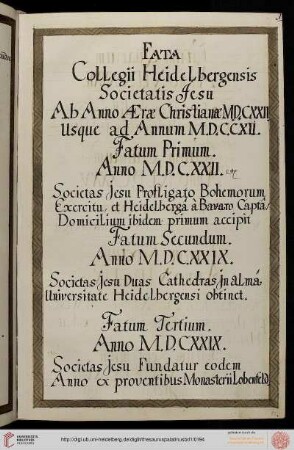 FATA
Collegii Heidelbergensis
Societatis Jesu
Ab Anno Æræ Christianæ M.D.C.XXII
usque ad Annum M.D.C.C.XII.
Fatum Primum.
Anno M.D.C.XXII.
Societas Jesu Profligato Bohemorum
Exercitu, et Heidelberga à Bavaro Capta,
Domicilium ibidem primum accepit
Fatum Secundum.
Anno M.D.C.XXIX.
Societas Jesu Duas Cathedras in almâ
Universitate Heidelbergensi obtinet.
Fatum Tertium.
Anno M.D.C.XXIX.
Societas Jesu Fundatur eodem
Anno ex proventibus Monasterii Lobenfeld
UNIVERSITÄTS-
BIBLIOTHEK
HEIDELBERG